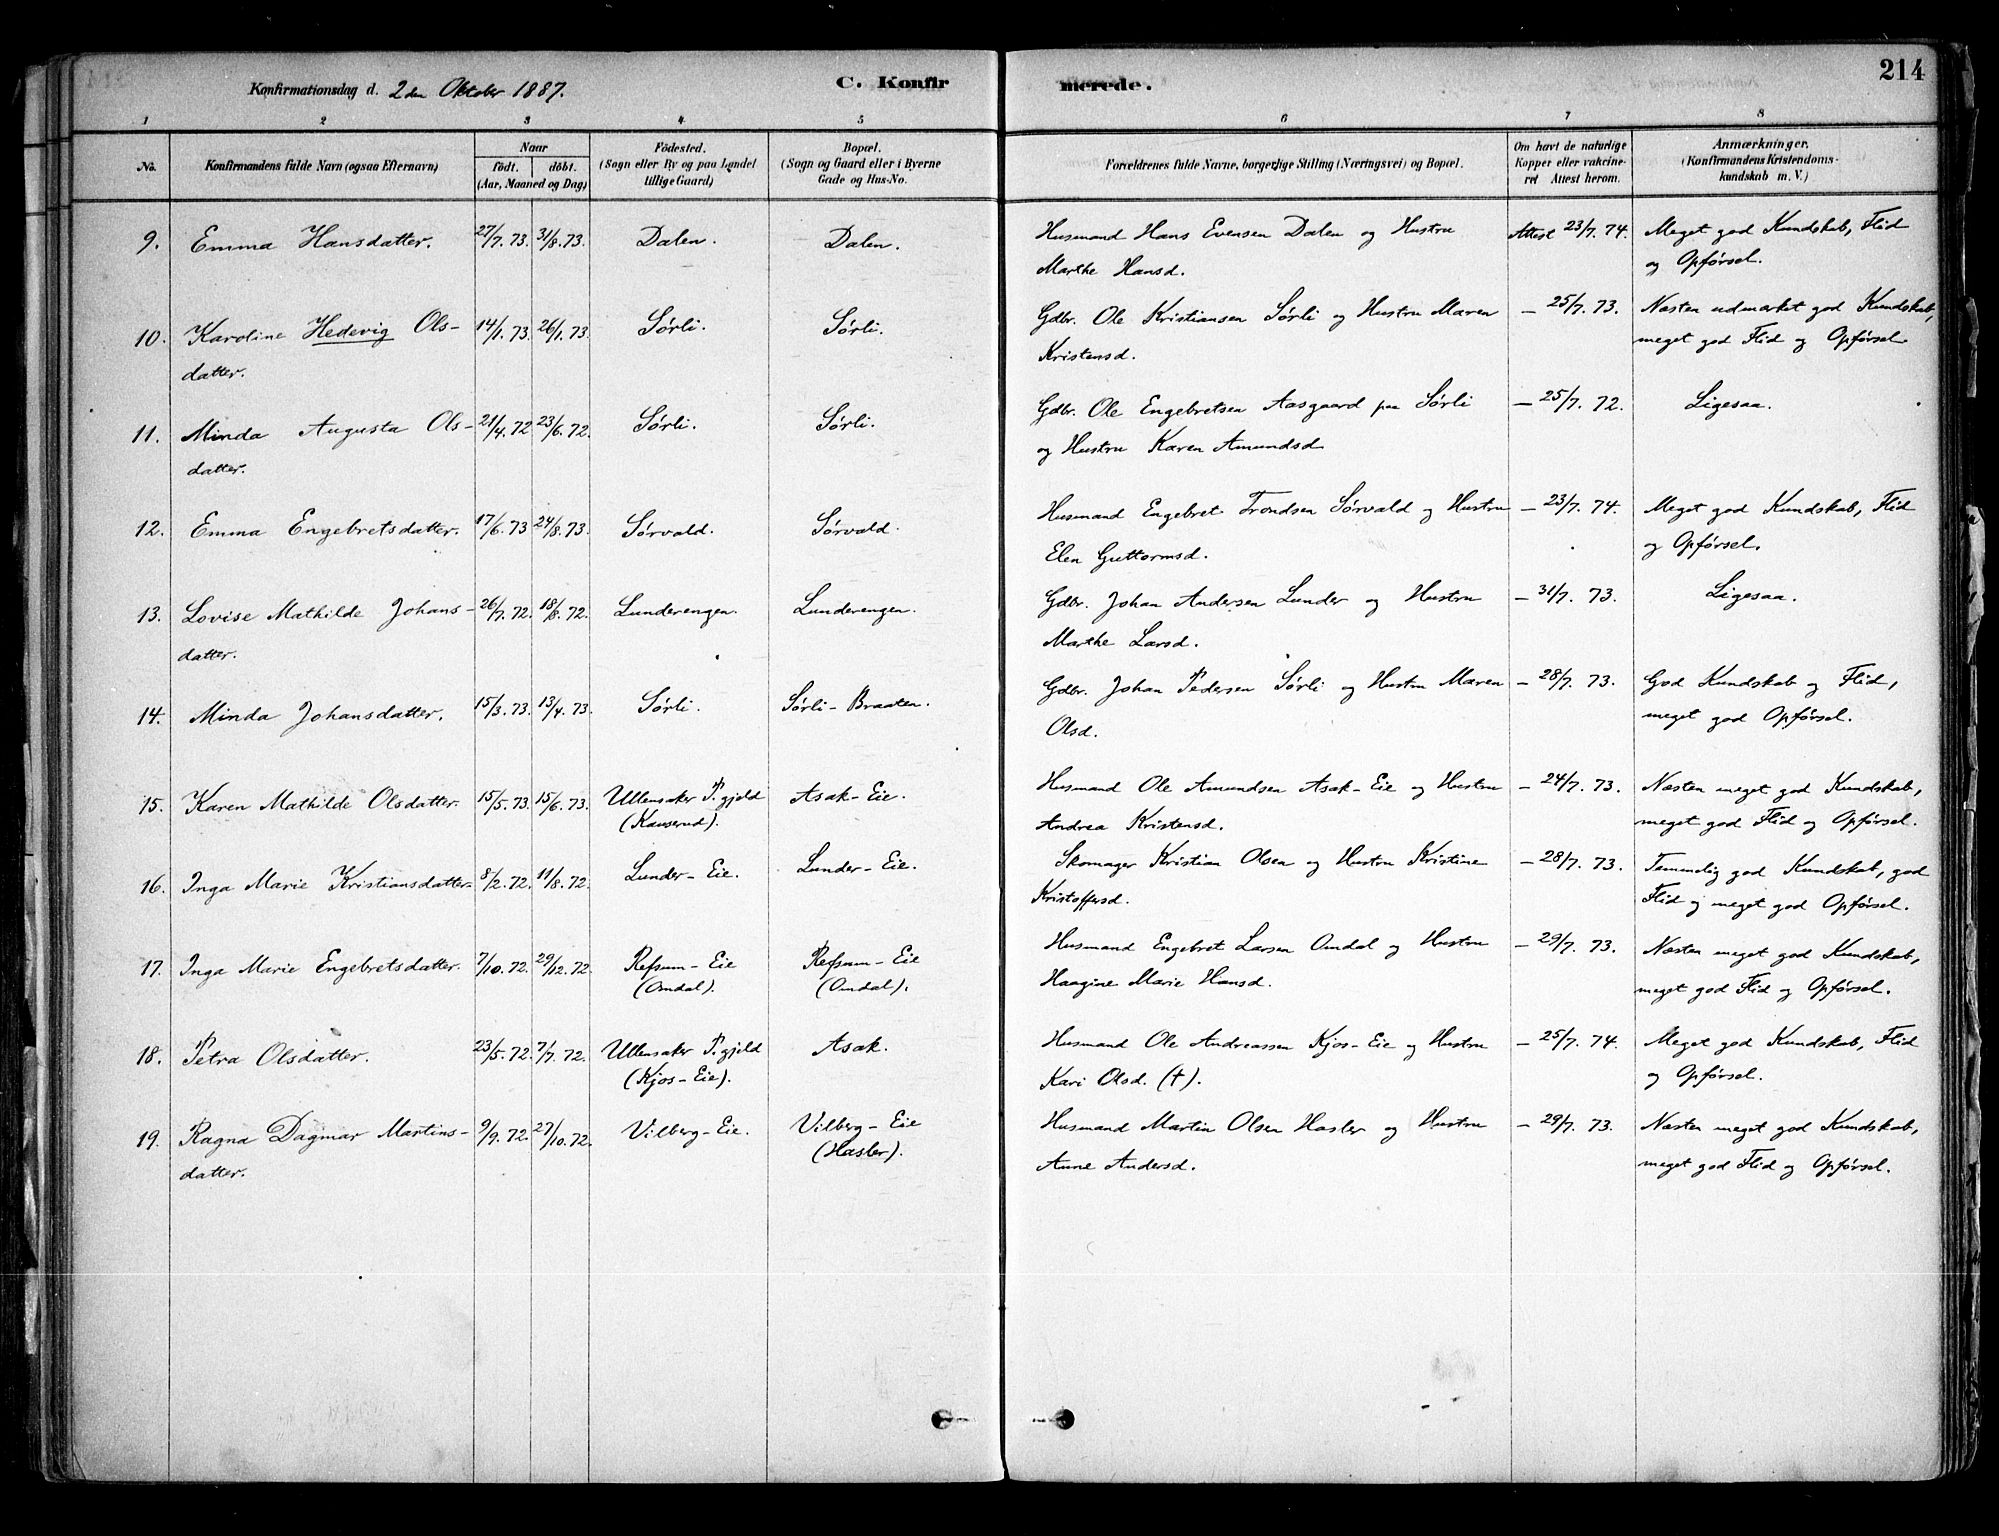 Konfirmationsdag d. 2den Oktober 1887.
C. Konfir
merede.
214
1 2 3 4 5 6 7 8
No.
Konfirmandens fulde Navn (ogsaa Efternavn)
Naar
födt. döbt.
(Aar, Maaned og Dag)
Födested.
(Sogn eller By og paa Landet
tillige Gaard)
Bopæl.
(Sogn og Gaard eller i Byerne
Gade og Hus-No.
Forældrenes fulde Navne, borgerlige Stilling (Næringsvei) og Bopæl.
Om havt de naturlige
Kopper eller vakcine-
ret Attest herom.
Anmærkninger.
(Konfirmandens Kristendoms-
kundskab m. V.)
9. Emma Hansdatter. 27/7. 73. 31/8. 73. Dalen. Dalen. Husmand Hans Evensen Dalen og Hustru Attest 23/7. 74. Meget god Kundskab, Flid
Marthe Hansd. og Opførsel.
10. Karoline Hedevig Ols- 14/1. 73. 26/1. 73. Sørli. Sørli. Gdbr. Ole Kristiansen Sørli og Hustru Maren — 25/7. 73. Næsten udmærket god Kundskab,
datter. Kristensd. meget god Flid og Opførsel.
11. Minda Augusta Ols- 21/4. 72 23/6. 72. Sørli. Sørli. Gdbr. Ole Engebretsen Aasgaard paa Sørli — 25/7. 72. Ligesaa.
datter. og Hustru Karen Amundsd
12. Emma Engebretsdatter. 17/6. 73 24/8. 73. Sørvald. Sørvald. Husmand Engebret Trondsen Sørvald og Hustru — 23/7. 74. Meget god Kundskab, Flid
Elen Guttormsd. og Opførsel.
13. Lovise Mathilde Johans- 26/7. 72. 18/8. 72. Lunderengen. Lunderengen. Gdbr. Johan Andersen Lunder og Hustru — 31/7. 73. Ligesaa.
datter. Marthe Larsd.
14. Minda Johansdatter. 15/3. 73. 13/4. 73. Sørli. Sørli-Braaten. Gdbr. Johan Pedersen Sørli og Hustru Maren — 28/7. 73. God Kundskab og Flid,
Olsd. meget god Opførsel.
15. Karen Mathilde Olsdatter. 15/5. 73. 15/6. 73. Ullensaker P.gjeld Asak-Eie. Husmand Ole Amundsen Asak-Eie og Hustru — 24/7. 73. Næsten meget god Kundskab,
(Kauserud). Andrea Kristensd. meget god Flid og Opførsel.
16. Inga Marie Kristiansdatter. 8/2. 72. 11/8. 72. Lunder-Eie. Lunder-Eie. Skomager Kristian Olsen og Hustru Kristine — 28/7. 73. Temmelig god Kundskab, god
Kristoffersd. Flid og meget god Opførsel.
17. Inga Marie Engebretsdatter. 7/10. 72. 29/12. 72. Refsum-Eie Refsum-Eie Husmand Engebret Larsen Omdal og Hustru — 29/7. 73. Næsten meget god Kundskab,
(Omdal). (Omdal). Haagine Marie Hansd. meget god Flid og Opførsel.
18. Petra Olsdatter. 23/5. 72. 7/7. 72. Ullensaker P.gjeld Asak. Husmand Ole Andreassen Kjos-Eie og Hustru — 25/7. 74. Meget god Kundskab, Flid
(Kjos-Eie). Kari Olsd. (†). og Opførsel.
19. Ragna Dagmar Martins- 9/9. 72. 27/10. 72. Vilberg-Eie. Vilberg-Eie Husmand Martin Olsen Hasler og Hustru — 29/7. 73. Næsten meget god Kundskab,
datter. (Hasler). Anne Andersd. meget god Flid og Opførsel.